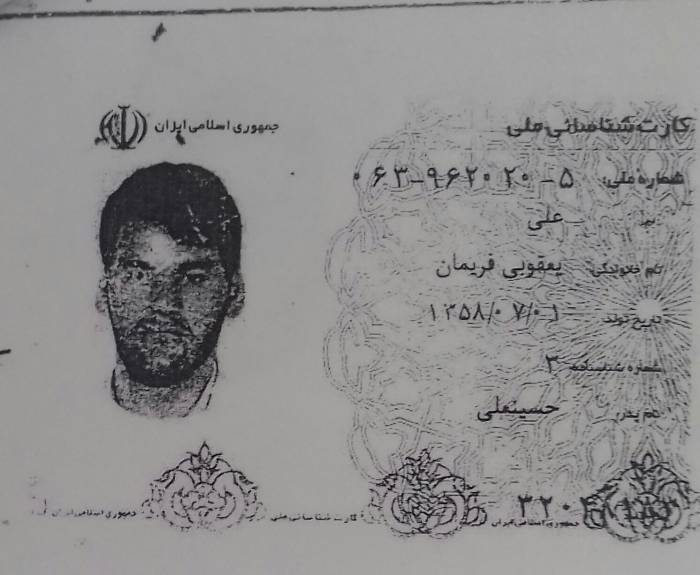 کارت شناسائی ملی
جمهوری اسلامی ایران
شماره ملی: ۰۶۳-۹۶۲۰۲۰-۵
نام: علی
نام خانوادگی: یعقوبی فریمان
تاریخ تولد: ۱۳۵۸/۰۷/۰۱
شماره شناسنامه: ۳
نام پدر: حسینعلی
جمهوری اسلامی ایران کارت شناسائی ملی جمهوری اسلامی ایران